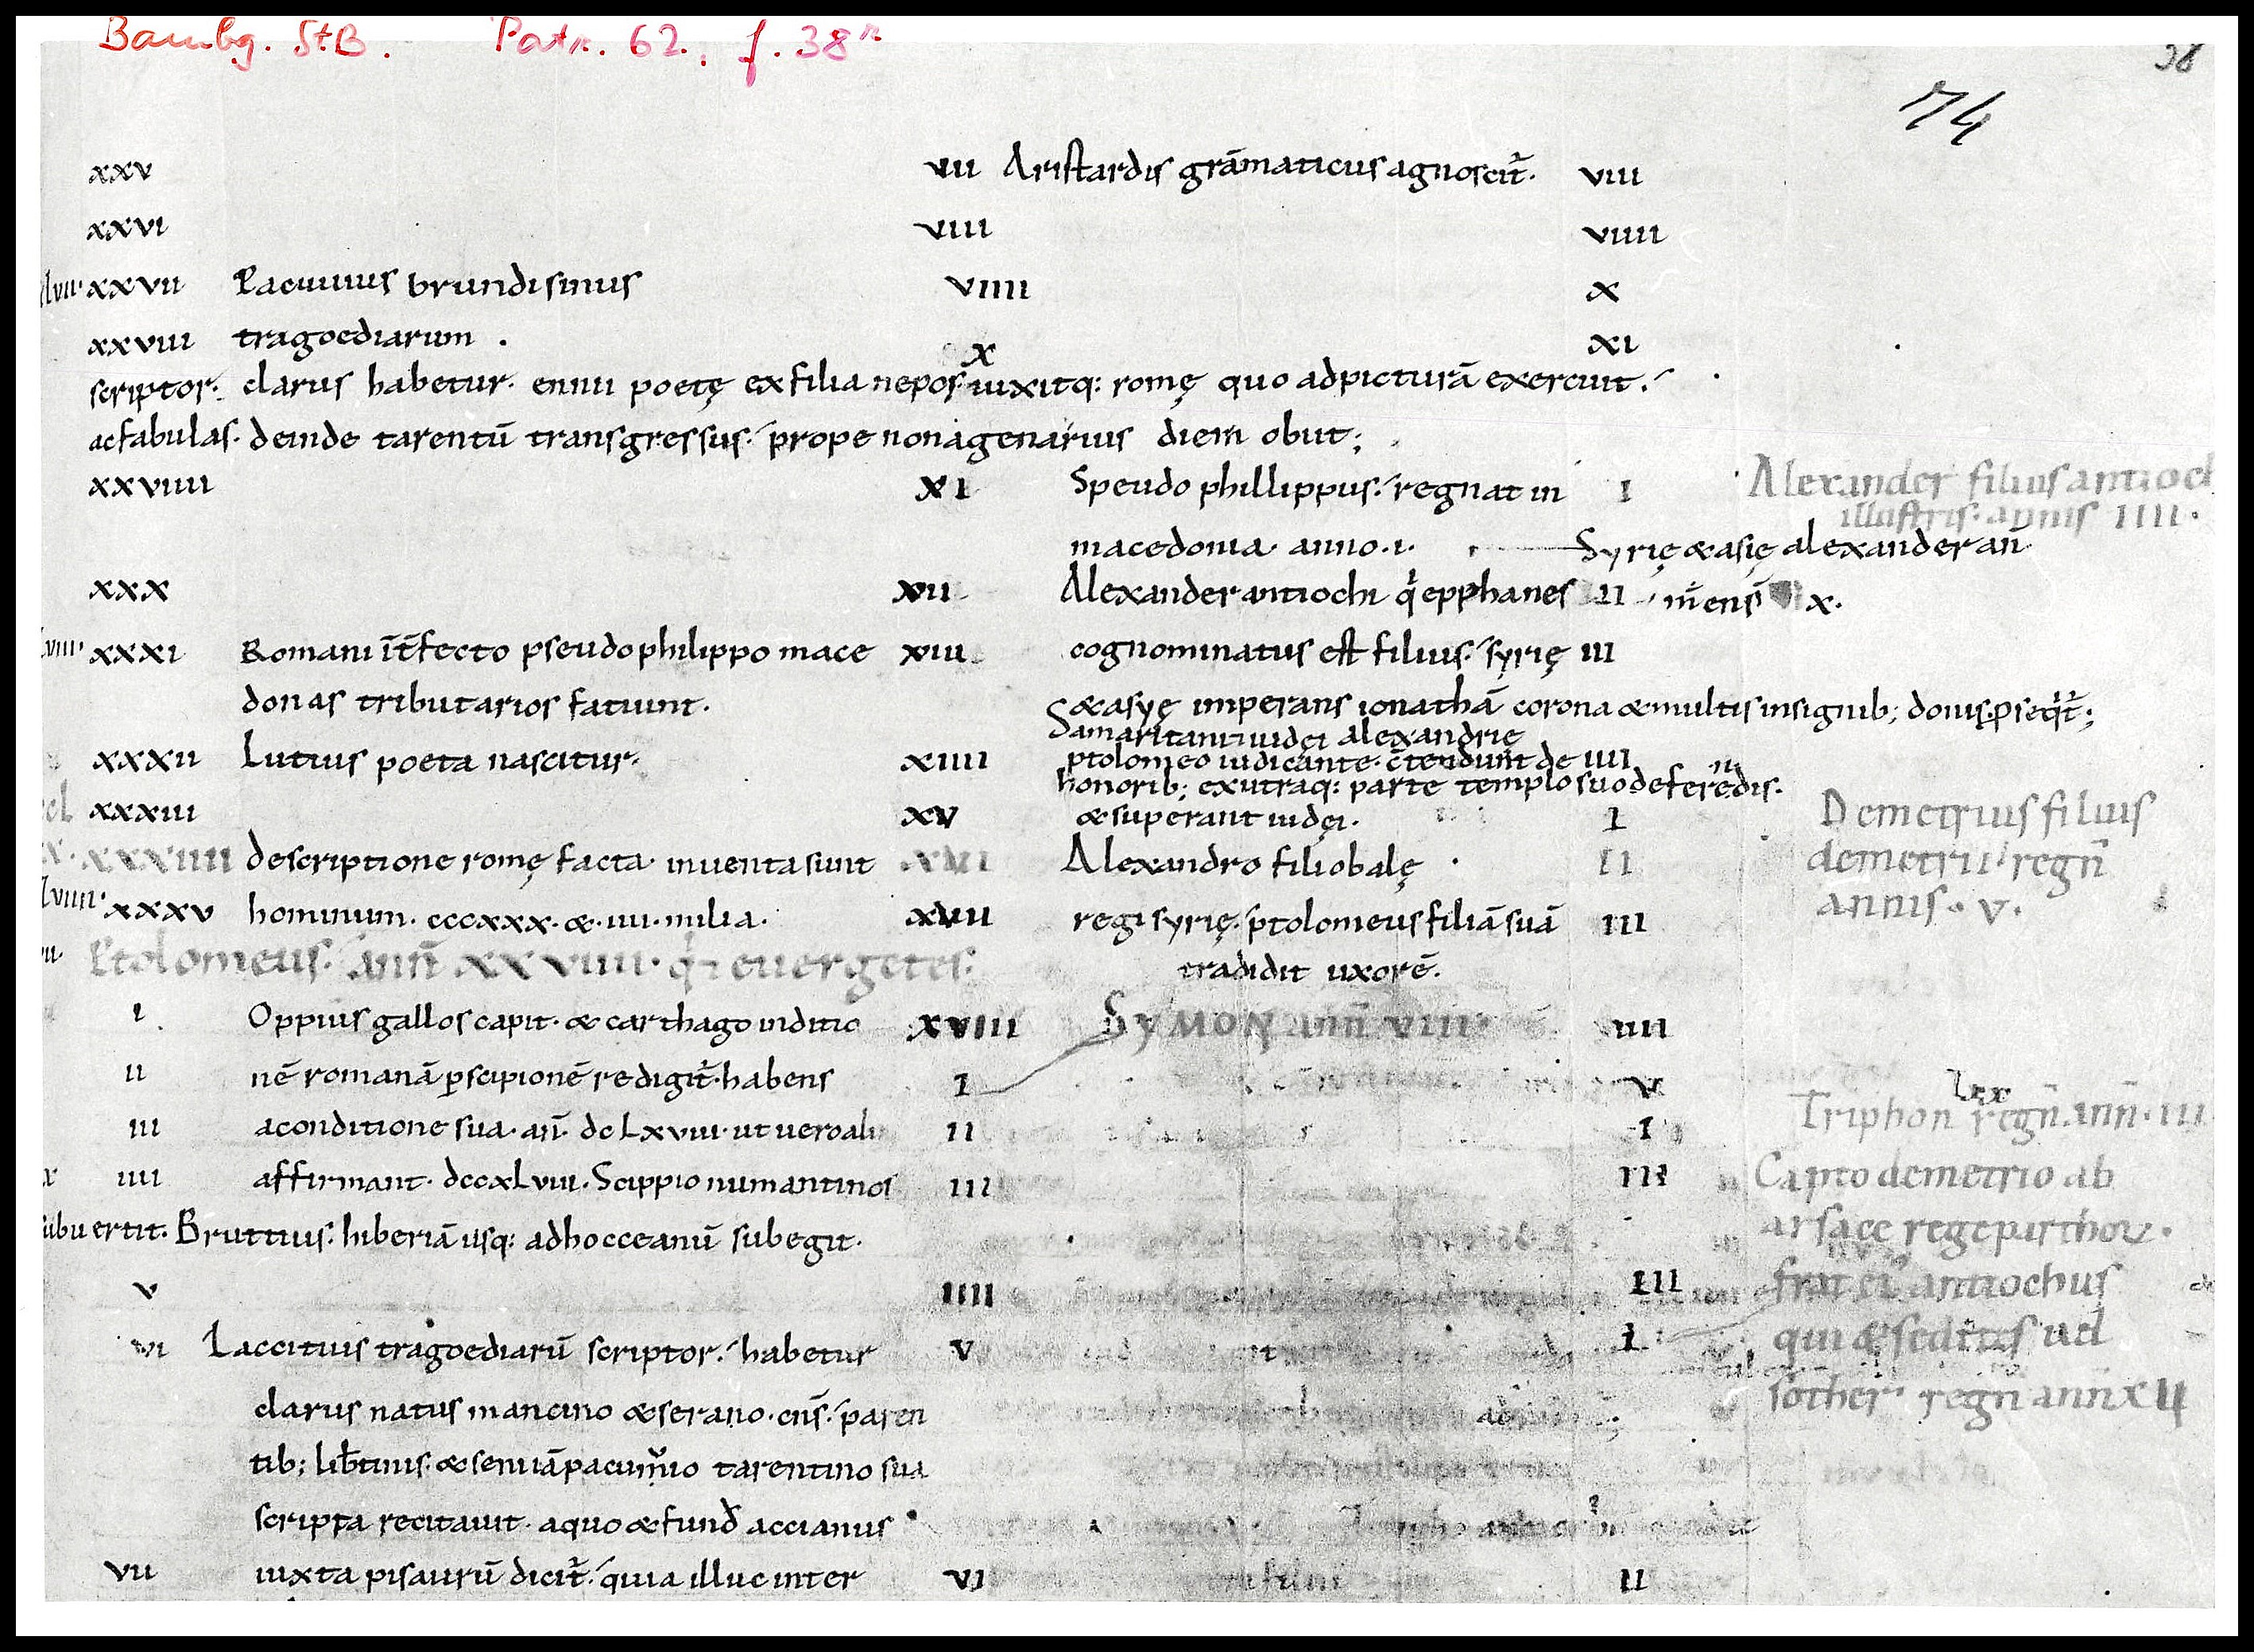 Bambg. StB. Patr. 62. f. 38r
38
74
xxv vii Aristardis grāmaticus agnoscit̄. viii
xxvi viii viiii
lvii· xxvii Pacuuius brundisinus viiii x
xxviii tragoediarum . x xi
scriptor. clarus habetur. ennii poetę ex filia nepos. uixitq: romę quo ad picturā exercuit.
ac fabulas. deinde tarentū transgressus. prope nonagenarius diem obiit;
xxviiii xi Speudo phillippus. regnat in i Alexander filius antioch
illustris. annis IIII.
macedonia. anno. i. Syrię & asię alexander an̄
xxx xii Alexander antiochi q̇ epphanes ii m̄ens̄ x.
lviii· xxxi Romani īt̄fecto pseudo philippo mace xiii cognominatus est filius. syrię iii
donas tributarios fatiunt. & asyę imperans ionathā corona & multis insignib; donis. pseq̇t̄;
Samaritani iudęi alexandrię
xxxii Lutius poeta nascitur. xiiii ptolomeo iudicante. c̄tendunt de iiii
honorib; ex utraq: parte templo suo deferēdis.
xxxiii xv & superant iudęi. i Demetrius filius
xxxiiii descriptione romę facta. inventa sunt xvi Alexandro filio balę ii demetrii regn̄
lviiii· xxxv hominum. cccxxx. &. iiii. milia. xvii regi syrię. ptolomeus filiā suā iii annis. v.
Ptolomeus. ann̄ xxviiii. q̇ euergetes. tradidit uxorē.
i Oppius gallos capit. & carthago in ditio xviii SYMON ann̄ viii iiii
ii nē romanā p̱ scipionē redigit̄. habens i v
iii a conditione sua. an̄. dcLxviii. ut uero alii ii i Triphon regn̄. ann̄. iii
iiii affirmant. dccxLviii. Scippio numantinos iii ii Capto demetrio ab
subuertit. Bruttius. hiberiā usq: ad hocceanū subegit. arsace rege parthoꝝ.
v iiii iii frat̄ ei' antiochus
vi Laccitius tragoediarū scriptor. habetur v i qui & sedites uel
clarus natus mancino & serano. cn̄s. paren sother regn̄ ann̄ x ii
tib; lib̄tinis. & seni iā pacuuio tarentino sua
scripta recitauit. a quo & fund̄ accianus
vii iuxta pisaurū dicit̄. quia illuc inter vi ii